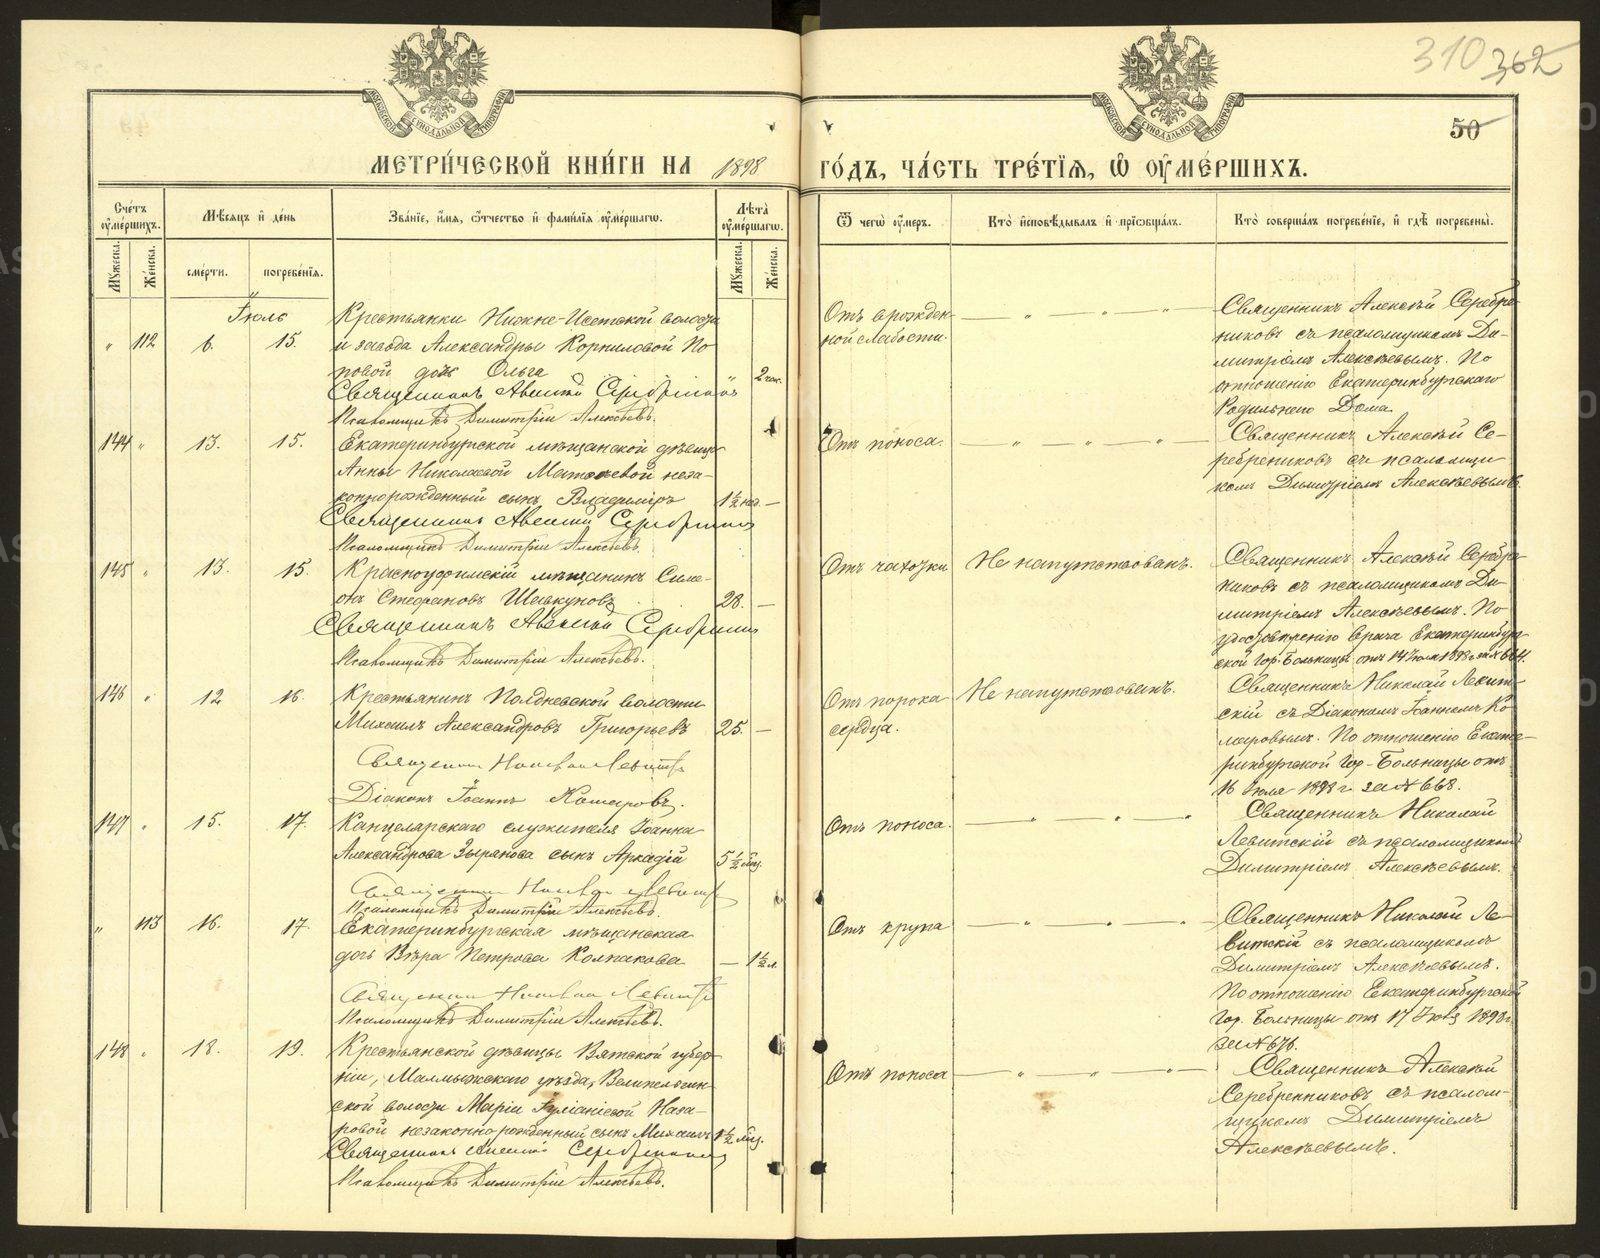 310 362
50
МОСКОВСКОЙ СѴНОДАЛЬНОЙ ТИПОГРАФІИ
МОСКОВСКОЙ СѴНОДАЛЬНОЙ ТИПОГРАФІИ
МЕТРИ́ЧЕСКОЙ КНИ́ГИ НА 1898 ГО́ДЪ, ЧА́СТЬ ТРЕ́ТЇѦ, Ѡ҆ ОУ҆МЕ́РШИХЪ.
Счетъ оумершихъ.
Мѣсяцъ и день
Званіе, имя, отчество и фамилія оумершагѡ.
Лѣта оумершагѡ.
Ѿ чегѡ оумеръ.
Кто исповѣдывалъ и пріобщалъ.
Кто совершалъ погребеніе, и гдѣ погребены.
Мужеска.
Женска.
смерти.
погребенія.
Мужеска.
Женска.
Іюль
" 112 6. 15.
Крестьянки Нижне-Исетской волости
и завода Александры Корниловой По-
повой дочь Ольга
" 2 час.
Священникъ Алексій Серебрениковъ
Псаломщикъ Димитрій Алексѣевъ.
Отъ врожден-
ной слабости.
Священникъ Алексѣй Серебре-
никовъ съ псаломщикомъ Ди-
митріемъ Алексѣевымъ. По
отношенію Екатеринбургскаго
Родильнаго Дома.
144 " 13. 15.
Екатеринбургской мѣщанской дѣвицы
Анны Николаевой неза-
коннорожденный сынъ Владиміръ
1½ нед. —
Священникъ Алексій Серебрениковъ
Псаломщикъ Димитрій Алексѣевъ.
Отъ поноса.
Священникъ Алексѣй Се-
ребрениковъ съ псаломщи-
комъ Димитріемъ Алексѣевымъ.
145 " 13. 15.
Красноуфимскій мѣщанинъ Симе-
онъ Стефановъ Шевкуновъ
28. —
Священникъ Алексій Серебрениковъ
Псаломщикъ Димитрій Алексѣевъ.
Отъ чахотки
Не напутствованъ.
Священникъ Алексѣй Серебре-
никовъ съ псаломщикомъ Ди-
митріемъ Алексѣевымъ. По
удостовѣренію врача Екатеринбург-
ской Гор. Больницы отъ 14 Іюля 1898 г. за № 664.
146 " 12 16.
Крестьянинъ Полдневской волости
Михаилъ Александровъ Григорьевъ
25. —
Священникъ Николай Левитскій
Діаконъ Іоаннъ Комаровъ.
Отъ порока
сердца.
Не напутствованъ.
Священникъ Николай Левит-
скій съ Діакономъ Іоанномъ Ко-
маровымъ. По отношенію Екате-
ринбургской Гор. Больницы отъ
16 Іюля 1898 г. за № 668.
147 " 15. 17.
Канцелярскаго служителя Іоанна
Александрова Зырянова сынъ Аркадій
5½ мѣс.
Священникъ Николай Левитскій
Псаломщикъ Димитрій Алексѣевъ.
Отъ поноса.
Священникъ Николай
Левитскій съ псаломщикомъ
Димитріемъ Алексѣевымъ.
" 113 16. 17.
Екатеринбургская мѣщанская
дочь Вѣра Петрова Колпакова
— 1½ л.
Священникъ Николай Левитскій
Псаломщикъ Димитрій Алексѣевъ.
Отъ крупа
Священникъ Николай Ле-
витскій съ псаломщикомъ
Димитріемъ Алексѣевымъ.
По отношенію Екатеринбургской
Гор. Больницы отъ 17 Іюля 1898 г.
за № 676.
148 " 18. 19.
Крестьянской дѣвицы Вятской губер-
ніи, Малмыжскаго уѣзда,
ской волости Маріи Іуліаніевой Наза-
ровой незаконнорожденный сынъ Михаилъ
1½ мѣс.
Священникъ Алексій Серебрениковъ
Псаломщикъ Димитрій Алексѣевъ.
Отъ поноса
Священникъ Алексѣй
Серебренниковъ съ псалом-
щикомъ Димитріемъ
Алексѣевымъ.